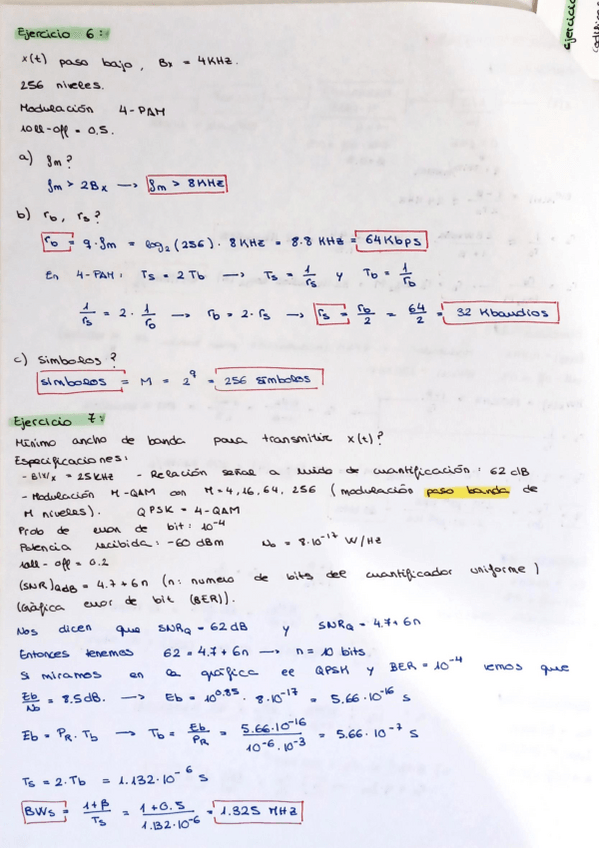 Ejercicio 6:
x(t) paso bajo, Bx = 4KHz.
256 niveles.
Modulación 4-PAM
roll-off = 0,5.
a) fm?
fm > 2Bx → fm > 8KHz
b) rb, rs?
rb = q·fm = log2(256)·8KHz = 8·8 KHz = 64Kbps
En 4-PAM: Ts = 2Tb → Ts = 1/rs y Tb = 1/rb
1/rs = 2·1/rb → rb = 2·rs → rs = rb/2 = 64/2 = 32 Kbaudios
c) Símbolos?
símbolos = M = 2^q = 256 símbolos
Ejercicio 7:
Mínimo ancho de banda para transmitir x(t)?
Especificaciones:
- = 25KHz - Relación señal a ruido de cuantificación: 62 dB
- Modulación M-QAM con M=4,16,64,256 (modulación paso banda de
M niveles). QPSK = 4-QAM
Prob de error de bit: 10^-4
Potencia recibida: -60 dBm No = 8·10^-17 W/Hz
roll-off = 0.2
(SNR)QdB = 4.7+6n (n: numero de bits del cuantificador uniforme)
(Gráfica error de bit (BER)).
Nos dicen que SNRQ = 62dB y SNRQ = 4.7+6n
Entonces tenemos 62 = 4.7+6n → n = 10 bits.
Si miramos en la gráfica de QPSK y BER = 10^-4 vemos que
Eb/No = 8.5dB. → Eb = 10^0.85 · 8·10^-17 = 5.66·10^-16 s
Eb = PR·Tb → Tb = Eb/PR = 5.66·10^-16/10^-6·10^-3 = 5.66·10^-7 s
Ts = 2·Tb = 1.132·10^-6 s
BWs = 1+β/Ts = 1+0.5/1.132·10^-6 = 1.325 MHz
ejercicio